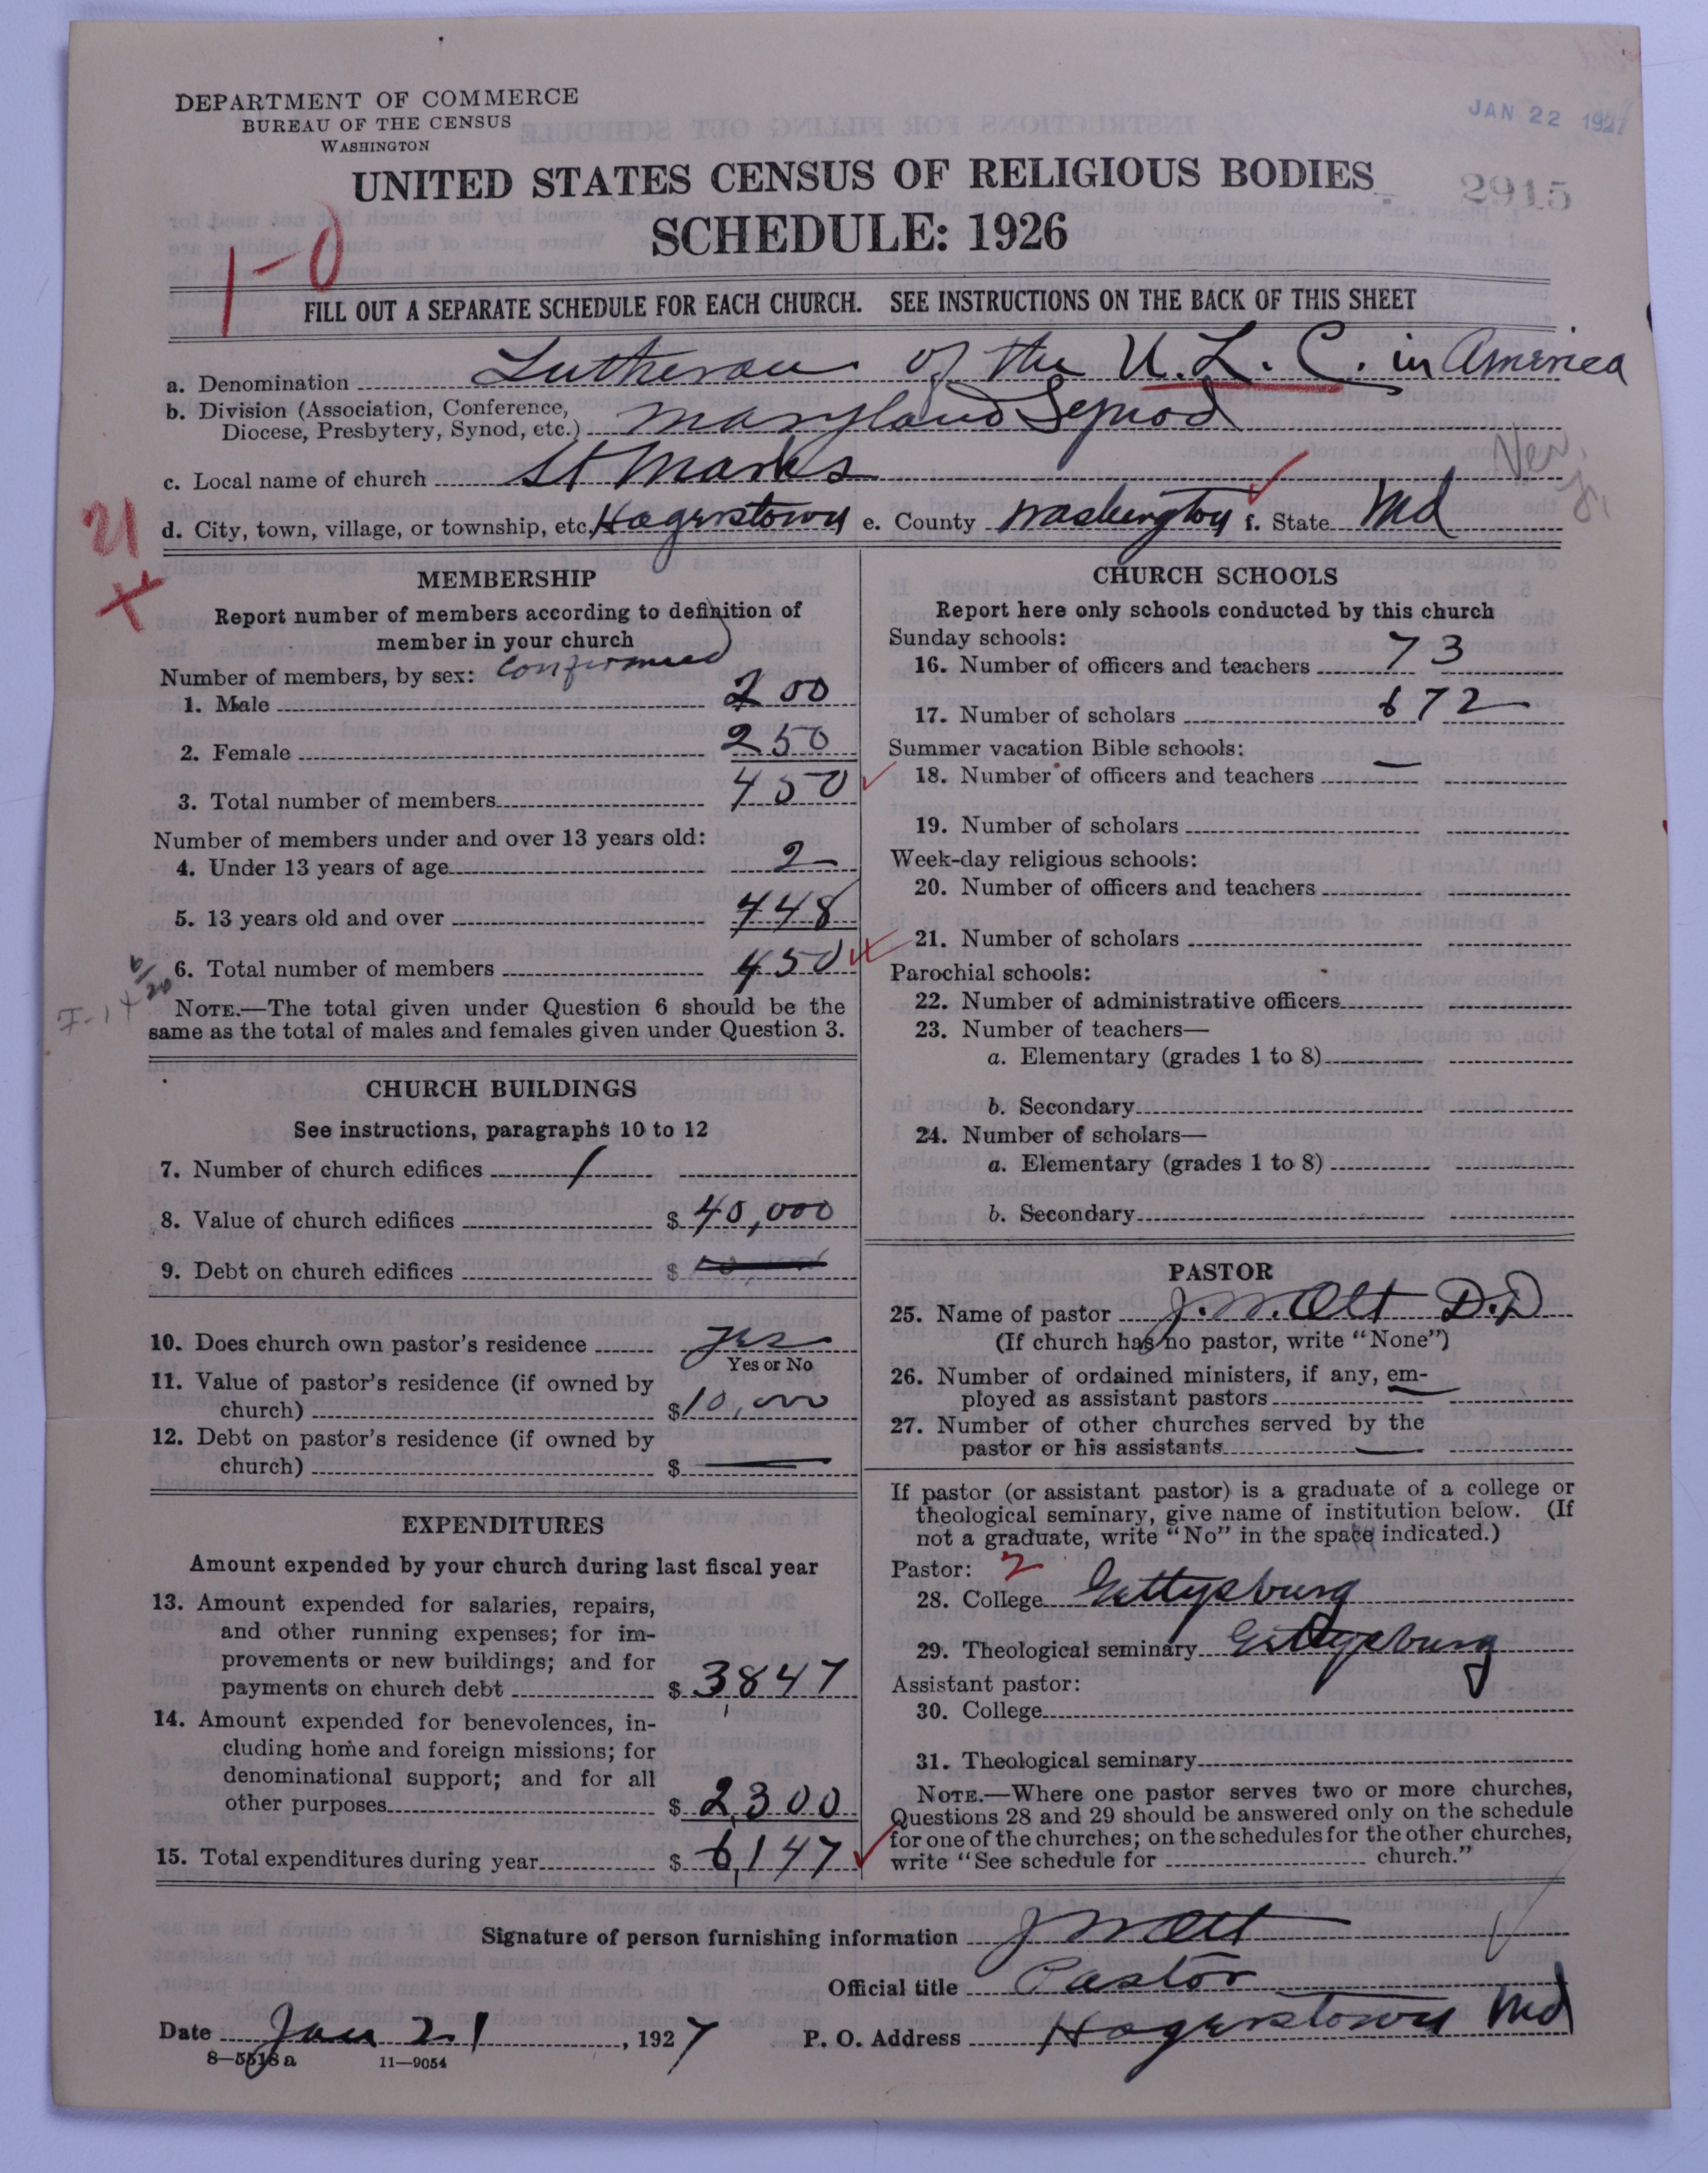 DEPARTMENT OF COMMERCE
BUREAU OF THE CENSUS
WASHINGTON
JAN 22 1927
UNITED STATES CENSUS OF RELIGIOUS BODIES
2915
SCHEDULE: 1926
1-0
FILL OUT A SEPARATE SCHEDULE FOR EACH CHURCH. SEE INSTRUCTIONS ON THE BACK OF THIS SHEET
a. Denomination Lutheran of the U. L. C. in America
b. Division (Association, Conference,
Diocese, Presbytery, Synod, etc.) Maryland Synod
c. Local name of church St Marks
Ver.
d. City, town, village, or township, etc. Hagerstown e. County Washington f. State Md
21
MEMBERSHIP
Report number of members according to definition of
member in your church
Number of members, by sex: Confirmed
1. Male 200
2. Female 250
3. Total number of members 450
Number of members under and over 13 years old:
4. Under 13 years of age 2
5. 13 years old and over 448
6. Total number of members 450
NOTE.—The total given under Question 6 should be the
same as the total of males and females given under Question 3.
CHURCH BUILDINGS
See instructions, paragraphs 10 to 12
7. Number of church edifices 1
8. Value of church edifices $ 40,000
9. Debt on church edifices $
10. Does church own pastor's residence Yes
Yes or No
11. Value of pastor's residence (if owned by
church) $ 10,000
12. Debt on pastor's residence (if owned by
church) $ —
EXPENDITURES
Amount expended by your church during last fiscal year
13. Amount expended for salaries, repairs,
and other running expenses; for im-
provements or new buildings; and for
payments on church debt $ 3847
14. Amount expended for benevolences, in-
cluding home and foreign missions; for
denominational support; and for all
other purposes $ 2,300
15. Total expenditures during year $ 6,147
CHURCH SCHOOLS
Report here only schools conducted by this church
Sunday schools:
16. Number of officers and teachers 73
17. Number of scholars 672
Summer vacation Bible schools:
18. Number of officers and teachers —
19. Number of scholars
Week-day religious schools:
20. Number of officers and teachers
21. Number of scholars
Parochial schools:
22. Number of administrative officers
23. Number of teachers—
a. Elementary (grades 1 to 8)
b. Secondary
24. Number of scholars—
a. Elementary (grades 1 to 8)
b. Secondary
PASTOR
25. Name of pastor J. W. Ott D.D
(If church has no pastor, write "None")
26. Number of ordained ministers, if any, em-
ployed as assistant pastors —
27. Number of other churches served by the
pastor or his assistants —
If pastor (or assistant pastor) is a graduate of a college or
theological seminary, give name of institution below. (If
not a graduate, write "No" in the space indicated.)
Pastor: 2
28. College Gettysburg
29. Theological seminary Gettysburg
Assistant pastor:
30. College
31. Theological seminary
NOTE.—Where one pastor serves two or more churches,
Questions 28 and 29 should be answered only on the schedule
for one of the churches; on the schedules for the other churches,
write "See schedule for church."
Signature of person furnishing information J W Ott
Official title Pastor
Date Jan 21, 1927 P. O. Address Hagerstown Md
8—5518a 11—9054